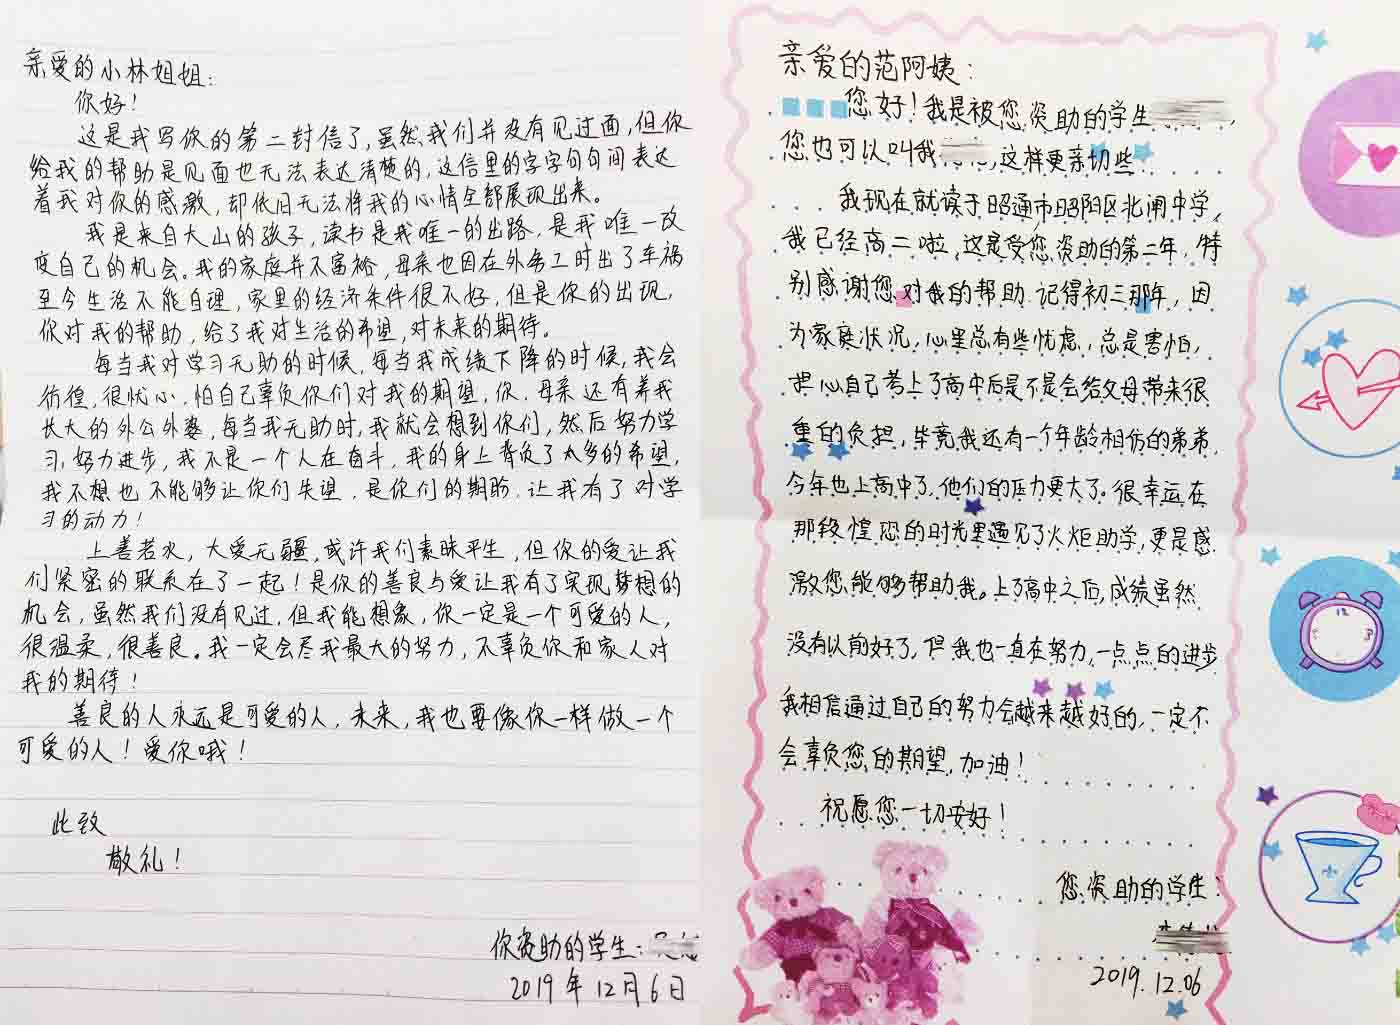 亲爱的小林姐姐：
你好！
这是我写你的第二封信了，虽然我们并没有见过面，但你
给我的帮助是见面也无法表达清楚的，这信里的字字句句间表达
着我对你的感激，却依旧无法将我的心情全部展现出来。
我是来自大山的孩子，读书是我唯一的出路，是我唯一改
变自己的机会。我的家庭并不富裕，母亲也因在外务工时出了车祸
至今生活不能自理，家里的经济条件很不好，但是你的出现，
你对我的帮助，给了我对生活的希望，对未来的期待。
每当我对学习无助的时候，每当我成绩下降的时候，我会
彷徨，很忧心，怕自己辜负你们对我的期望，你、母亲还有养我
长大的外公外婆，每当我无助时，我就会想到你们，然后努力学
习，努力进步，我不是一个人在奋斗，我的身上背负了太多的希望，
我不想也不能够让你们失望，是你们的期盼，让我有了对学
习的动力！
上善若水，大爱无疆，或许我们素昧平生，但你的爱让我
们紧密的联系在了一起！是你的善良与爱让我有了实现梦想的
机会，虽然我们没有见过，但我能想象，你一定是一个可爱的人，
很温柔，很善良。我一定会尽我最大的努力，不辜负你和家人对
我的期待！
善良的人永远是可爱的人，未来，我也要像你一样做一个
可爱的人！爱你哦！
此致
敬礼！
你资助的学生：
2019年12月6日
亲爱的范阿姨：
您好！我是被您资助的学生
您也可以叫我，这样更亲切些
我现在就读于昭通市昭阳区北闸中学，
我已经高二啦，这是受您资助的第二年，特
别感谢您对我的帮助，记得初三那年，因
为家庭状况，心里总有些忧虑，总是害怕，
担心自己考上了高中后是不是会给父母带来很
重的负担，毕竟我还有一个年龄相仿的弟弟，
今年也上高中了，他们的压力更大了。很幸运在
那段惶恐的时光里遇见了火炬助学，更是感
激您能够帮助我。上了高中之后，成绩虽然
没有以前好了，但我也一直在努力，一点点的进步
我相信通过自己的努力会越来越好的，一定不
会辜负您的期望，加油！
祝愿您一切安好！
您资助的学生：
2019.12.06